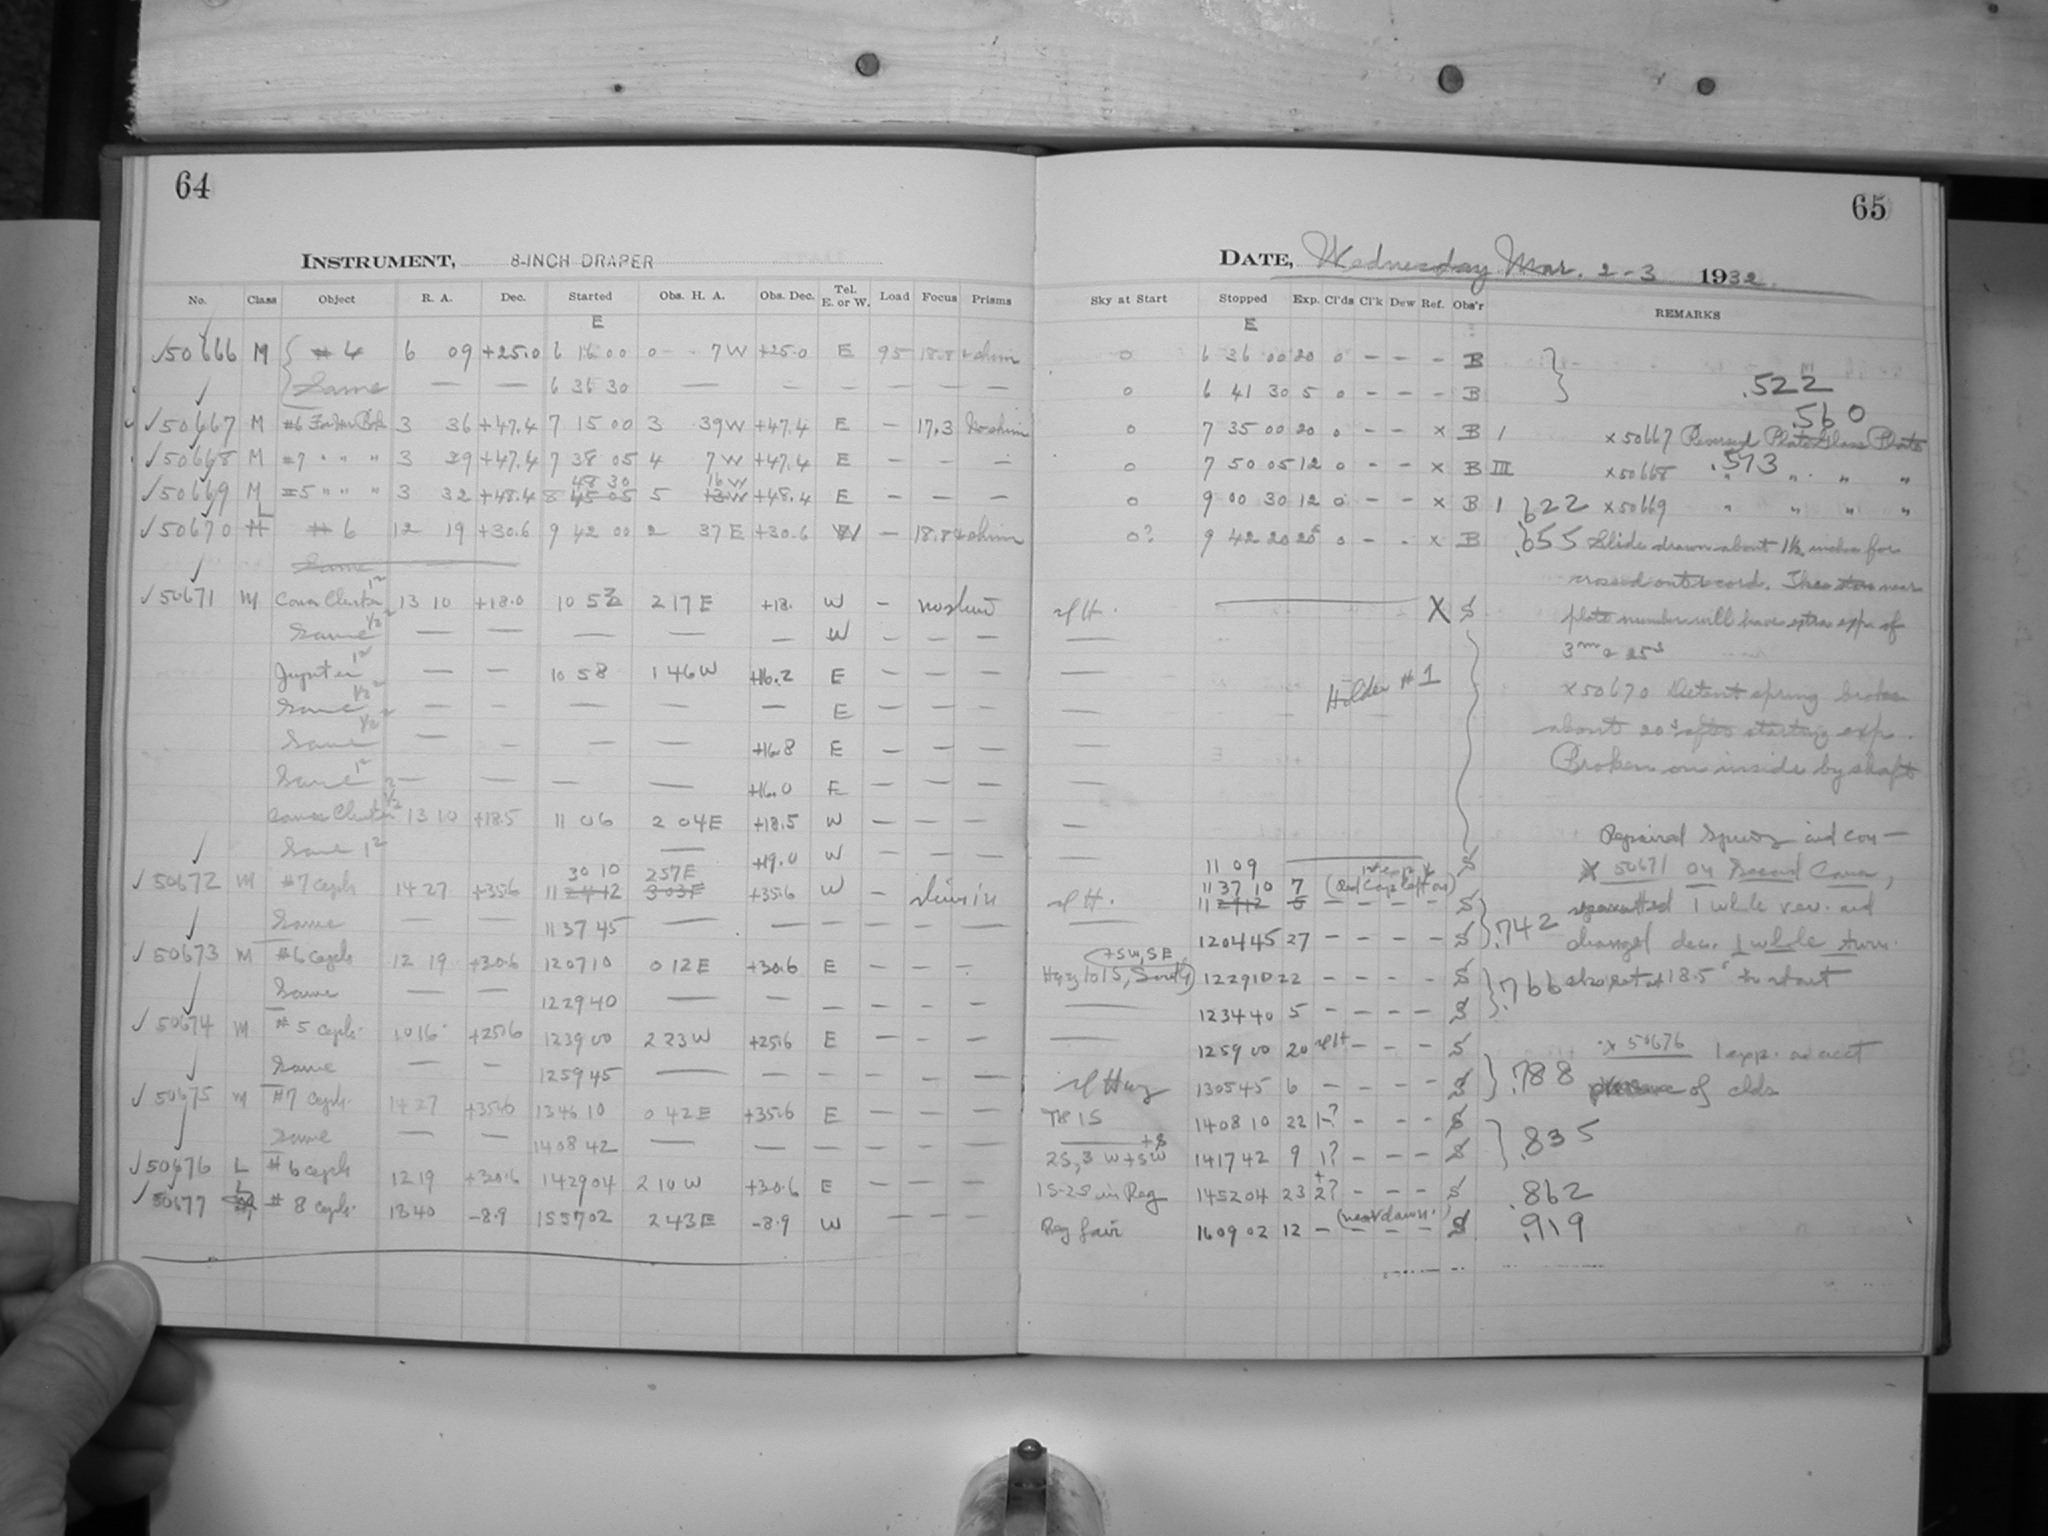 64
INSTRUMENT, 8-INCH DRAPER
No. Class Object R. A. Dec. Started Obs. H. A. Obs. Dec. Tel. E. or W. Load Focus Prisms
E
✓50666 M # 4 6 09 +25.0 6 16 00 0 7W +25.0 E 95 18.8
Same — — 6 36 30 — — — — — —
✓50667 M #6 3 36 +47.4 7 15 00 3 39W +47.4 E — 17.3
✓50668 M #7 " " " 3 39 +47.4 7 38 05 4 7W +47.4 E — — —
48 30 16W
✓50669 M #5 " " " 3 32 +48.4 8 45 05 5 13W +48.4 E — — —
✓50670 L # 6 12 19 +30.6 9 42 00 2 37E +30.6 W — 18.8
Same
✓50671 M Coma Cluster 13 10 +18.0 10 52 2 17E +18. W —
Same — — — — — W — — —
Jupiter — — 10 58 1 46W +16.2 E — — —
Same — — — — — E — — —
Same — — — — +16.8 E — — —
Same — — — — +16.0 E — — —
Coma Cluster 13 10 +18.5 11 06 2 04E +18.5 W — — —
Same — +19.0 W — — —
30 10 257E
✓50672 M #7 ceph 14 27 +35.6 11 24 12 303E +35.6 W —
Same — — 11 37 45 — — — — — —
✓50673 M #6 ceph 12 19 +30.6 12 07 10 0 12E +30.6 E — — —
Same — — 12 29 40 — — — — — —
✓50674 M # 5 ceph. 10 16 +25.6 12 39 00 2 23W +25.6 E — — —
Same — — 12 59 45 — — — — — —
✓50675 M #7 ceph. 14 27 +35.6 13 46 10 0 42E +35.6 E — — —
Same — — 14 08 42 — — — — — —
✓50676 L # 6 ceph 12 19 +30.6 14 29 04 2 10W +30.6 E — — —
✓50677 L # 8 ceph. 13 40 -8.9 15 57 02 2 43E -8.9 W — — —
65
DATE, Wednesday Mar. 2-3 1932.
Sky at Start Stopped Exp. Cl'ds Cl'k Dew Ref. Obs'r REMARKS
E
0 6 36 00 20 0 — — — B
0 6 41 30 5 0 — — — B .522
.560
0 7 35 00 20 0 — — x B I x 50667 Reversed Plate Glass Plate
0 7 50 05 12 0 — — x B III x 50668 .573 " " " "
0 9 00 30 12 0 — — x B I .622 x 50669 " " " "
0? 9 42 20 20s 0 — — x B .655 Slide drawn about 1½ inches for
crossed out record. The stars near
plate number will have extra exp. of
3m & 25s
X S
Holder # 1
x 50670 Detent spring broke
about 20s after starting exp.
Broken on inside by shaft
Repaired spring and con—
11 09 S x 50671 on second Coma,
11 37 10 7 (Red cap left on)
11 24 12 5 — — — — S 1 whole rev. and
12 04 45 27 — — — — S .742 changed dec. 1 whole turn.
+SW, SE
Hazy to 15, South 12 29 10 22 — — — — S .766 18.5s to start
— 12 34 40 5 — — — — S
— 12 59 00 20 — — — S x 50676 1 exp. on acct
13 05 45 6 — — — — S .788 of clds
TH 15 14 08 10 22 1-? — — — S
+S
25, 3 W + SW 14 17 42 9 1? — — — S .835
15-25 in Reg 14 52 04 23 2? — — — S .862
(near dawn.)
Reg fair 16 09 02 12 — — — — S .919